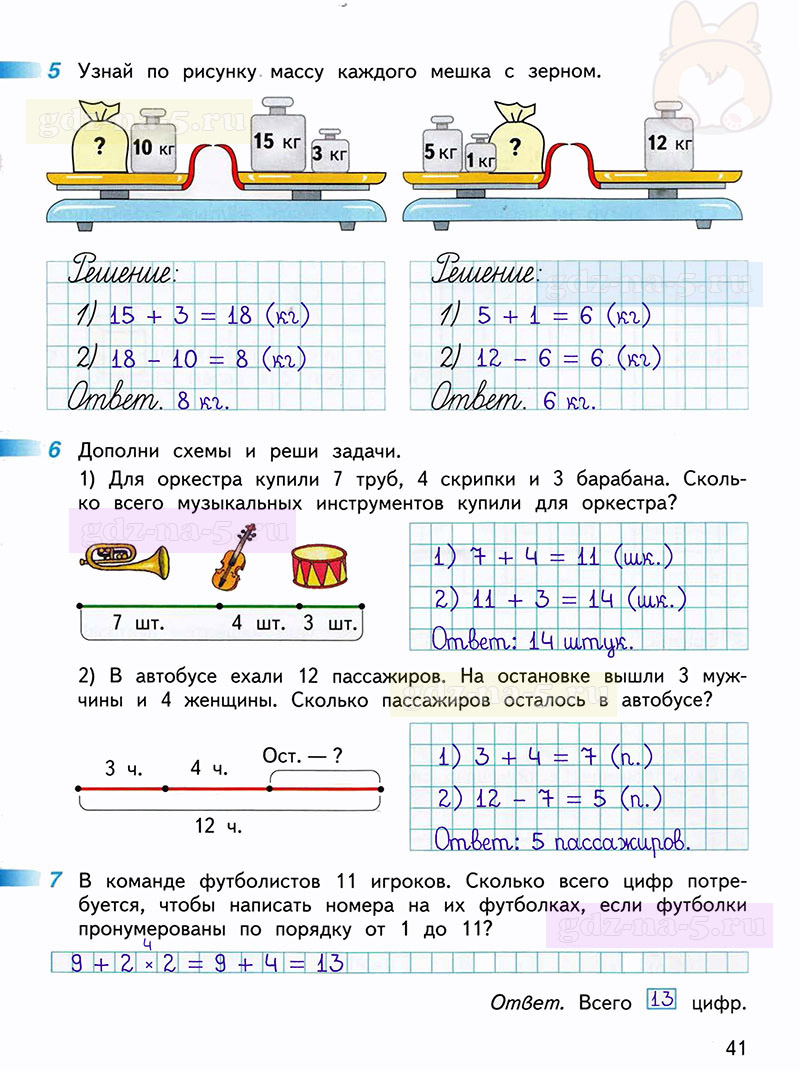 5 Узнай по рисунку массу каждого мешка с зерном.
gdz-na-5.ru
? 10 кг 15 кг 3 кг 5 кг 1 кг ? 12 кг
Решение:
1) 15 + 3 = 18 (кг)
2) 18 - 10 = 8 (кг)
Ответ. 8 кг.
Решение:
gdz-na-5.ru
1) 5 + 1 = 6 (кг)
2) 12 - 6 = 6 (кг)
Ответ. 6 кг.
6 Дополни схемы и реши задачи.
1) Для оркестра купили 7 труб, 4 скрипки и 3 барабана. Сколь-
ко всего музыкальных инструментов купили для оркестра?
gdz-na-5.ru
7 шт. 4 шт. 3 шт.
1) 7 + 4 = 11 (шк.)
2) 11 + 3 = 14 (шк.)
Ответ: 14 штук.
2) В автобусе ехали 12 пассажиров. На остановке вышли 3 муж-
чины и 4 женщины. Сколько пассажиров осталось в автобусе?
gdz-na-5.ru
3 ч. 4 ч. Ост. — ?
12 ч.
1) 3 + 4 = 7 (п.)
2) 12 - 7 = 5 (п.)
Ответ: 5 пассажиров.
7 В команде футболистов 11 игроков. Сколько всего цифр потре-
буется, чтобы написать номера на их футболках, если футболки
пронумерованы по порядку от 1 до 11?
gdz-na-5.ru
4
9 + 2 × 2 = 9 + 4 = 13
Ответ. Всего 13 цифр.
41